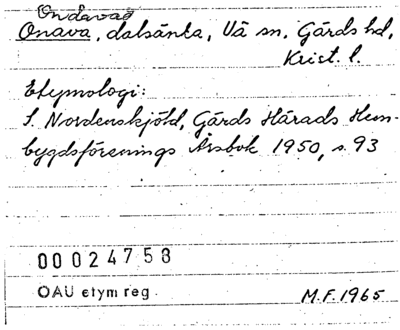 Ondavad
Onava, dalsänka, Vä sn, Gärds hd,
Krist. l.
Etymologi:
S. Nordenskjöld, Gärds Härads Hem-
bygdsförenings Årsbok 1950, s. 93
00024758
OAU etym reg
M.F. 1965